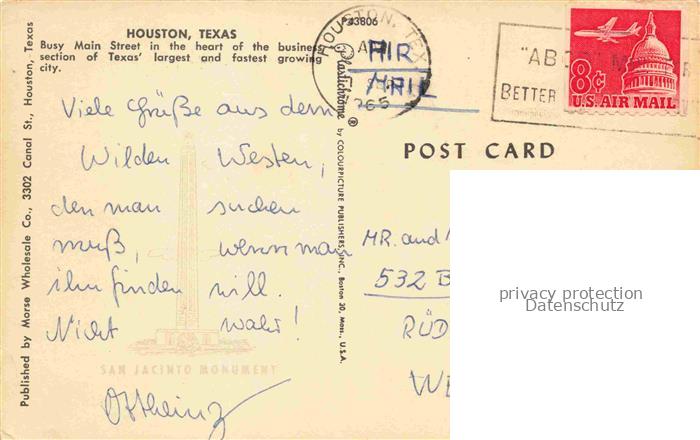 HOUSTON, TEXAS
Busy Main Street in the heart of the business
section of Texas' largest and fastest growing
city.
Viele Grüße aus dem
Wilden Westen,
den man suchen
muß, wenn man
ihn finden will.
Nicht wahr!
Ottheinz
SAN JACINTO MONUMENT
Published by Morse Wholesale Co., 3302 Canal St., Houston, Texas
P43806
Plastichrome ® by COLOURPICTURE PUBLISHERS, INC., Boston 30, Mass., U.S.A.
HOUSTON, TEX
1965
AIR
MAIL
BETTER
8¢
U.S. AIR MAIL
POST CARD
MR. and
532 B
RÜD
WE
privacy protection
Datenschutz